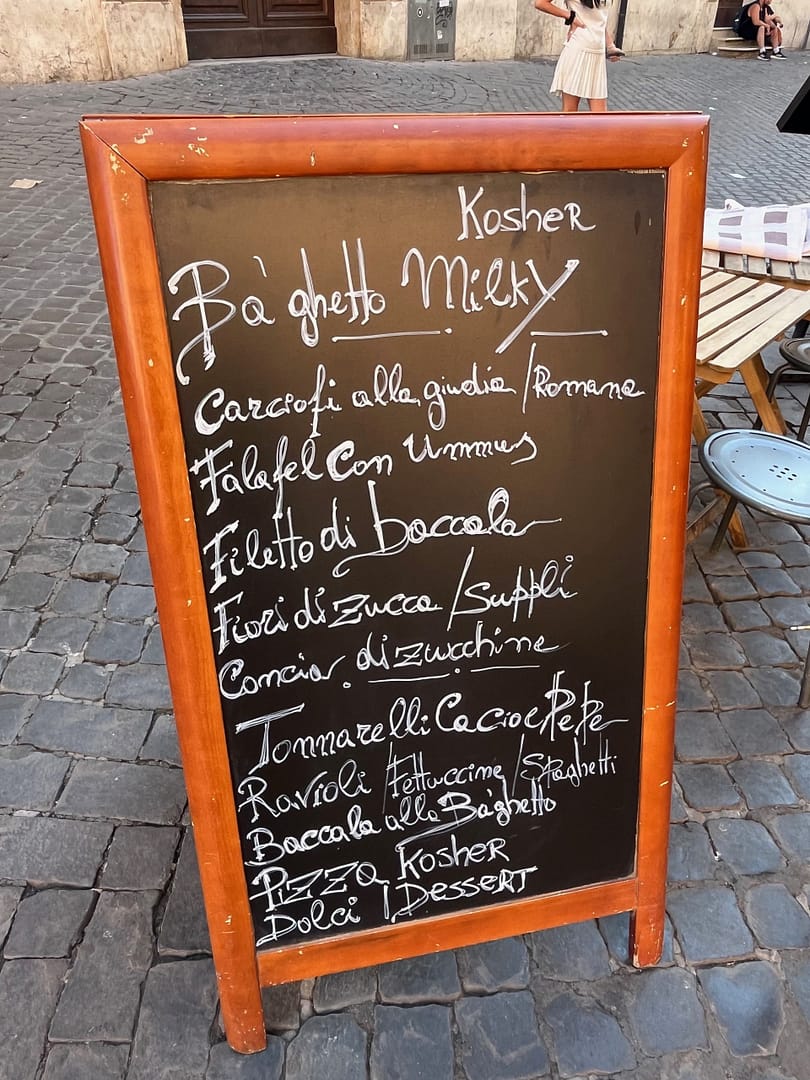 Kosher
Ba'ghetto Milky
Carciofi alla giudia / Romana
Falafel Con Ummus
Filetto di baccala
Fiori di zucca / Supplì
Concia di zucchine
Tonnarelli Cacio e Pepe
Ravioli / Fettuccine / Spaghetti
Baccala alla Ba'ghetto
Pizza Kosher
Dolci | Dessert